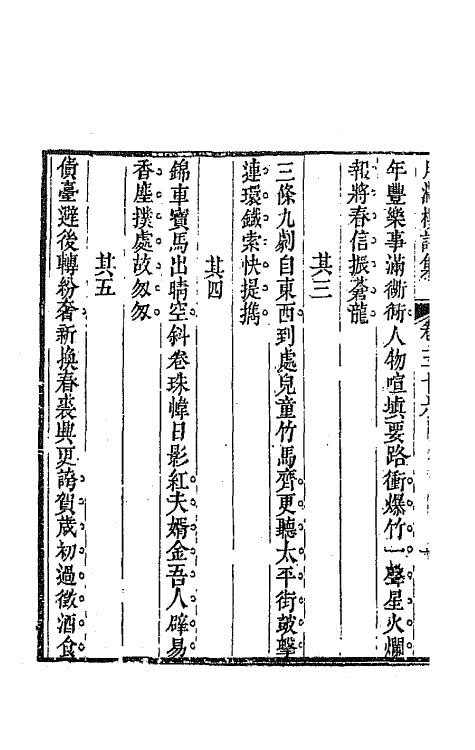 年豐樂事滿衢衖人物喧塡要路衝爆竹一聲星火爛
報將春信振蒼龍
其三
三條九劇自東西到處兒童竹馬齊更聽太平街鼓擊
連環鐵索快提擕
其四
錦車寶馬出晴空斜卷珠幃日影紅夫婿金吾人辟易
香塵撲處故匆匆
其五
債臺避後轉紛奢新換春裘興更誇賀歲初過徵酒食